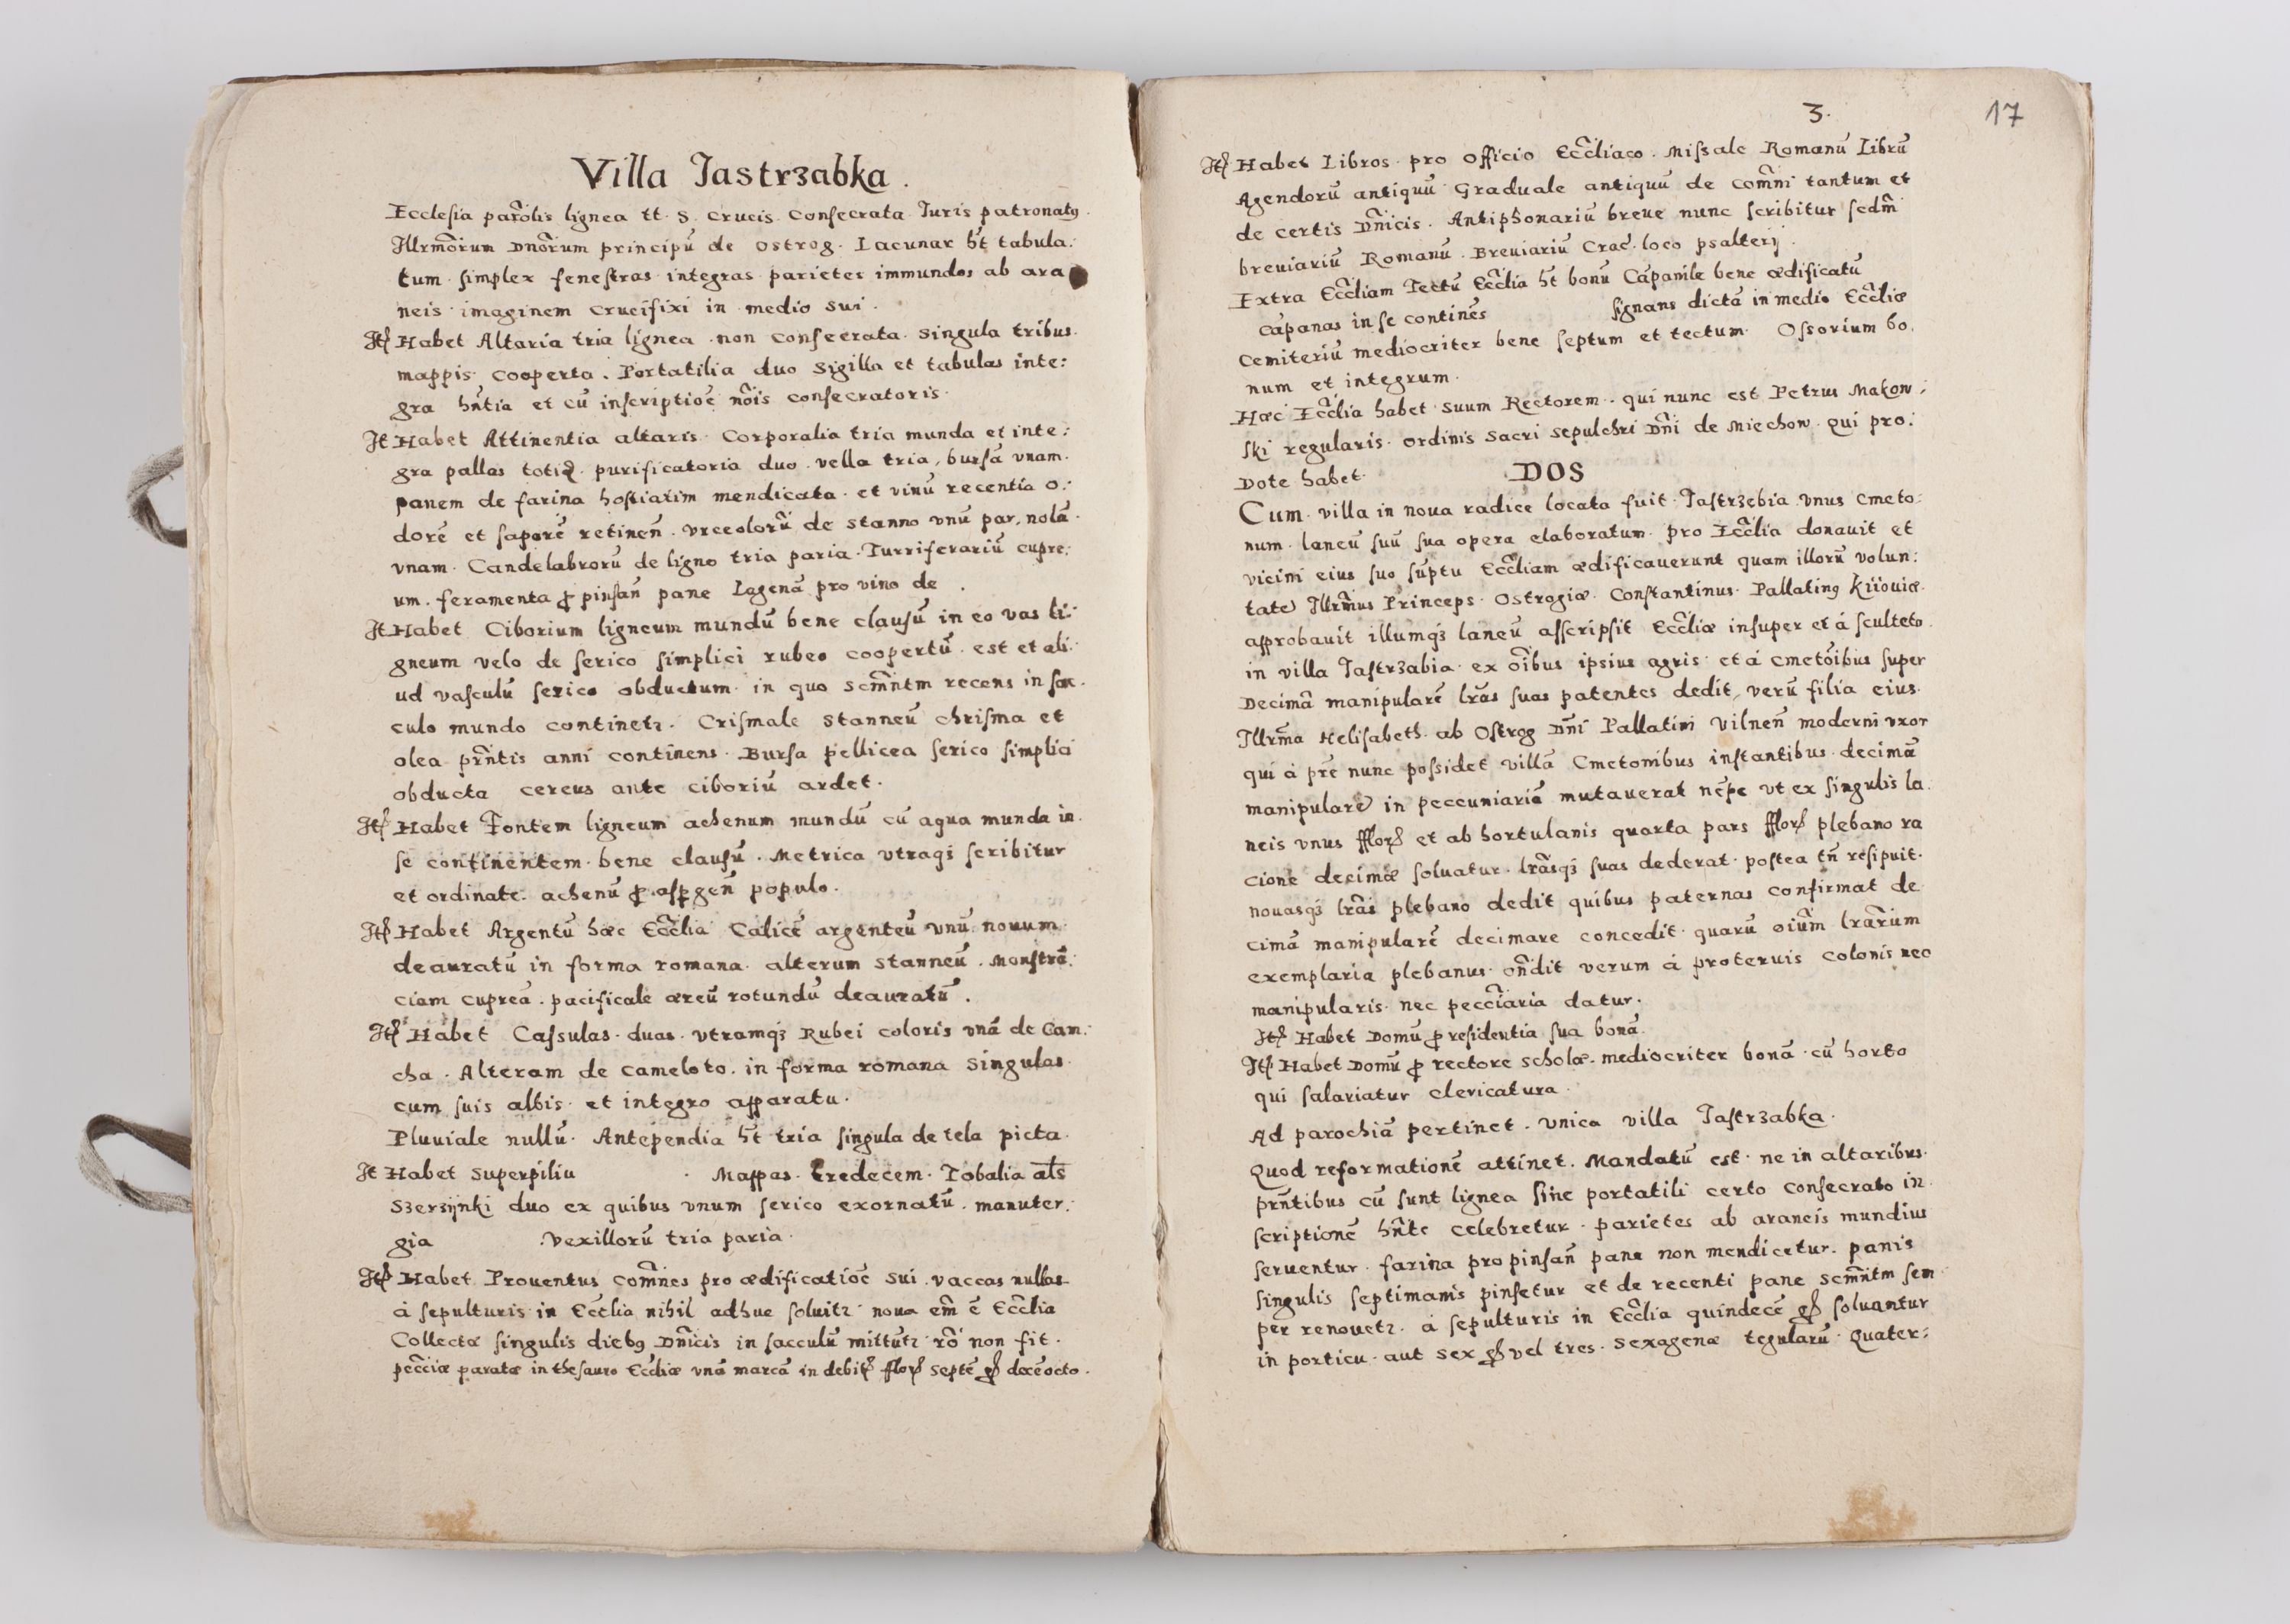 Villa Jastrzabka.
Ecclesia parõlis lignea tt. S. Crucis. Consecrata Juris patronatꝯ.
Illrmõrum Dnõrum principũ de Ostrog. Lacunar ht̃ tabula:
tum simplex fenestras integras parietes immundos ab ara
neis imaginem Crucifixi in medio sui.
Itẽ Habet Altaria tria lignea non consecrata singula tribus
mappis cooperta. Portatilia duo sigilla et tabulas inte:
gra hñtia et cũ inscriptioẽ nõis consecratoris.
It Habet Attinentia altaris. Corporalia tria munda et inte:
gra pallas totiđ. purificatoria duo. vella tria, bursã unam.
panem de farina hostiatim mendicata. et vinũ recentia o:
dorẽ et saporẽ retineñ. Vrceolorũ de stanno vnũ par, nolã.
vnam. Candelabrorũ de ligno tria paria. Turriferariũ cupre:
um. feramenta ꝓ pinsañ pane Lagenã pro vino de .
It Habet Ciborium ligneum mundũ bene clausũ in eo vas li:
gneum velo de serico simplici rubeo coopertũ. est et ali:
ud vasculũ serico obductum in quo Scm̃ntm recens in sac.
culo mundo continetꝛ. Crismale Stanneũ chrisma et
olea prñtis anni continens. Bursa pellicea serico simplici
obducta cereus ante ciboriũ ardet.
Itẽ Habet Fontem ligneum achenum mundũ cũ aqua munda in.
se continentem bene clausũ. Metrica vtraqꝫ scribitur
et ordinate. achenũ ꝓ aspgeñ populo.
Itẽ Habet Argentũ hæc Eccl̃ia Calicẽ argenteũ vnũ nouum
deauratũ in forma romana. alterum stanneũ. Monstrã:
ciam cupreã. pacificale æreũ rotundũ deauratũ.
Itẽ Habet Cassulas duas. vtramqꝫ Rubei coloris vnã de Cam:
cha. Alteram de cameloto. in forma romana singulas
cum suis albis et integro apparatu.
Pluuiale nullũ. Antependia ht̃ tria singula de tela picta.
It Habet Superpiliu . Mappas. tredecem. Tobalia al̃s
Szerzÿnki duo ex quibus vnum serico exornatũ. manuter:
gia .Vexillorũ tria paria.
Itẽ Habet Prouentus com̃nes pro ædificatioẽ sui. vaccas nullas
à sepulturis in Eccl̃ia nihil adhuc soluitꝛ noua em̃ ẽ Eccl̃ia
Collectæ singulis diebꝯ Dñicis in sacculũ mittũtꝛ rõ non fit.
pecc̃iæ paratæ in thesauro Eccl̃iæ vnã marcã in debiť fflorẽ septẽ gr̃ decẽocto.
3.
17
Itẽ Habet Libros pro officio Eccl̃iaco. Missale Romanũ Librũ
Agendorũ antiquũ Graduale antiquũ de com̃ni tantum et
de certis Dñicis. Antiphonariũ breue nunc scribitur sedm̃
breuiariũ Romanũ. Breuiariũ Crac̃. loco psalterij.
Extra Eccl̃iam Tectũ Eccl̃ia ht̃ bonũ Cãpanile bene ædificatũ
cãpanas in se continẽs signans dictã in medio Eccl̃iæ
Cemiteriũ mediocriter bene septum et tectum. Ossorium bo.
num et integrum.
Hæc Eccl̃ia habet suum Rectorem. qui nunc est Petrus Makow:
ski regularis ordinis sacri sepulchri Dñi de Miechow. Qui pro:
Dote habet.
DOS
Cum villa in noua radice locata fuit Jastrzębia vnus Cmeto:
num laneũ suũ sua opera elaboratum pro Eccl̃ia donauit et
vicini eius suo sũptu Eccl̃iam ædificauerunt quam illorũ volun:
tatẽ Illrm̃us Princeps Ostrogiæ Constantinus Pallatinꝯ Kiiouiæ
approbauit illumqꝫ laneũ asscripsit Eccl̃iæ insuper et à sculteto
in villa Jastrzabia ex oĩbus ipsius agris et à cmetoĩbus super
Decimã manipularẽ lrãs suas patentes dedit, verũ filia eius
Illrm̃a Helisabeth ab Ostrog Dñi Pallatini Vilneñ moderni vxor
qui à prẽ nunc possidet villã Cmetonibus instantibus decimã
manipularẽ in peccuniariã mutauerat nẽpe vt ex singulis la.
neis vnus fflorẽ et ab hortulanis quarta pars fflorẽ plebano ra
cione decimæ soluatur. lrãsqꝫ suas dederat. postea tñ resipuit.
nouasqꝫ lrãs plebano dedit quibus paternas confirmat de
cimã manipularẽ decimare concedit quarũ oiũm lrarũm
exemplaria plebanus oñdit verum à proteruis colonis nec
manipularis nec pecc̃iaria datur.
Itẽ Habet Domũ ꝓ residentia sua bonã.
Itẽ Habet Domũ ꝓ rectore scholæ. mediocriter bonã cũ horto
qui salariatur clericatura.
Ad parochiã pertinet. vnica villa Jastrzabka.
Quod reformationẽ attinet. Mandatũ est ne in altaribus.
prñtibus cũ sunt lignea sine portatili certo consecrato in.
scriptionẽ hñte celebretur. parietes ab araneis mundius
seruentur. farina pro pinsañ pane non mendicetur. panis
singulis septimanis pinsetur et de recenti pane Scm̃ntm sem
per renouetꝛ. à sepulturis in Eccl̃ia quindecẽ gr̃ soluantur
in porticu. aut sex gr̃ vel tres. Sexagenæ tegularũ. Quater: